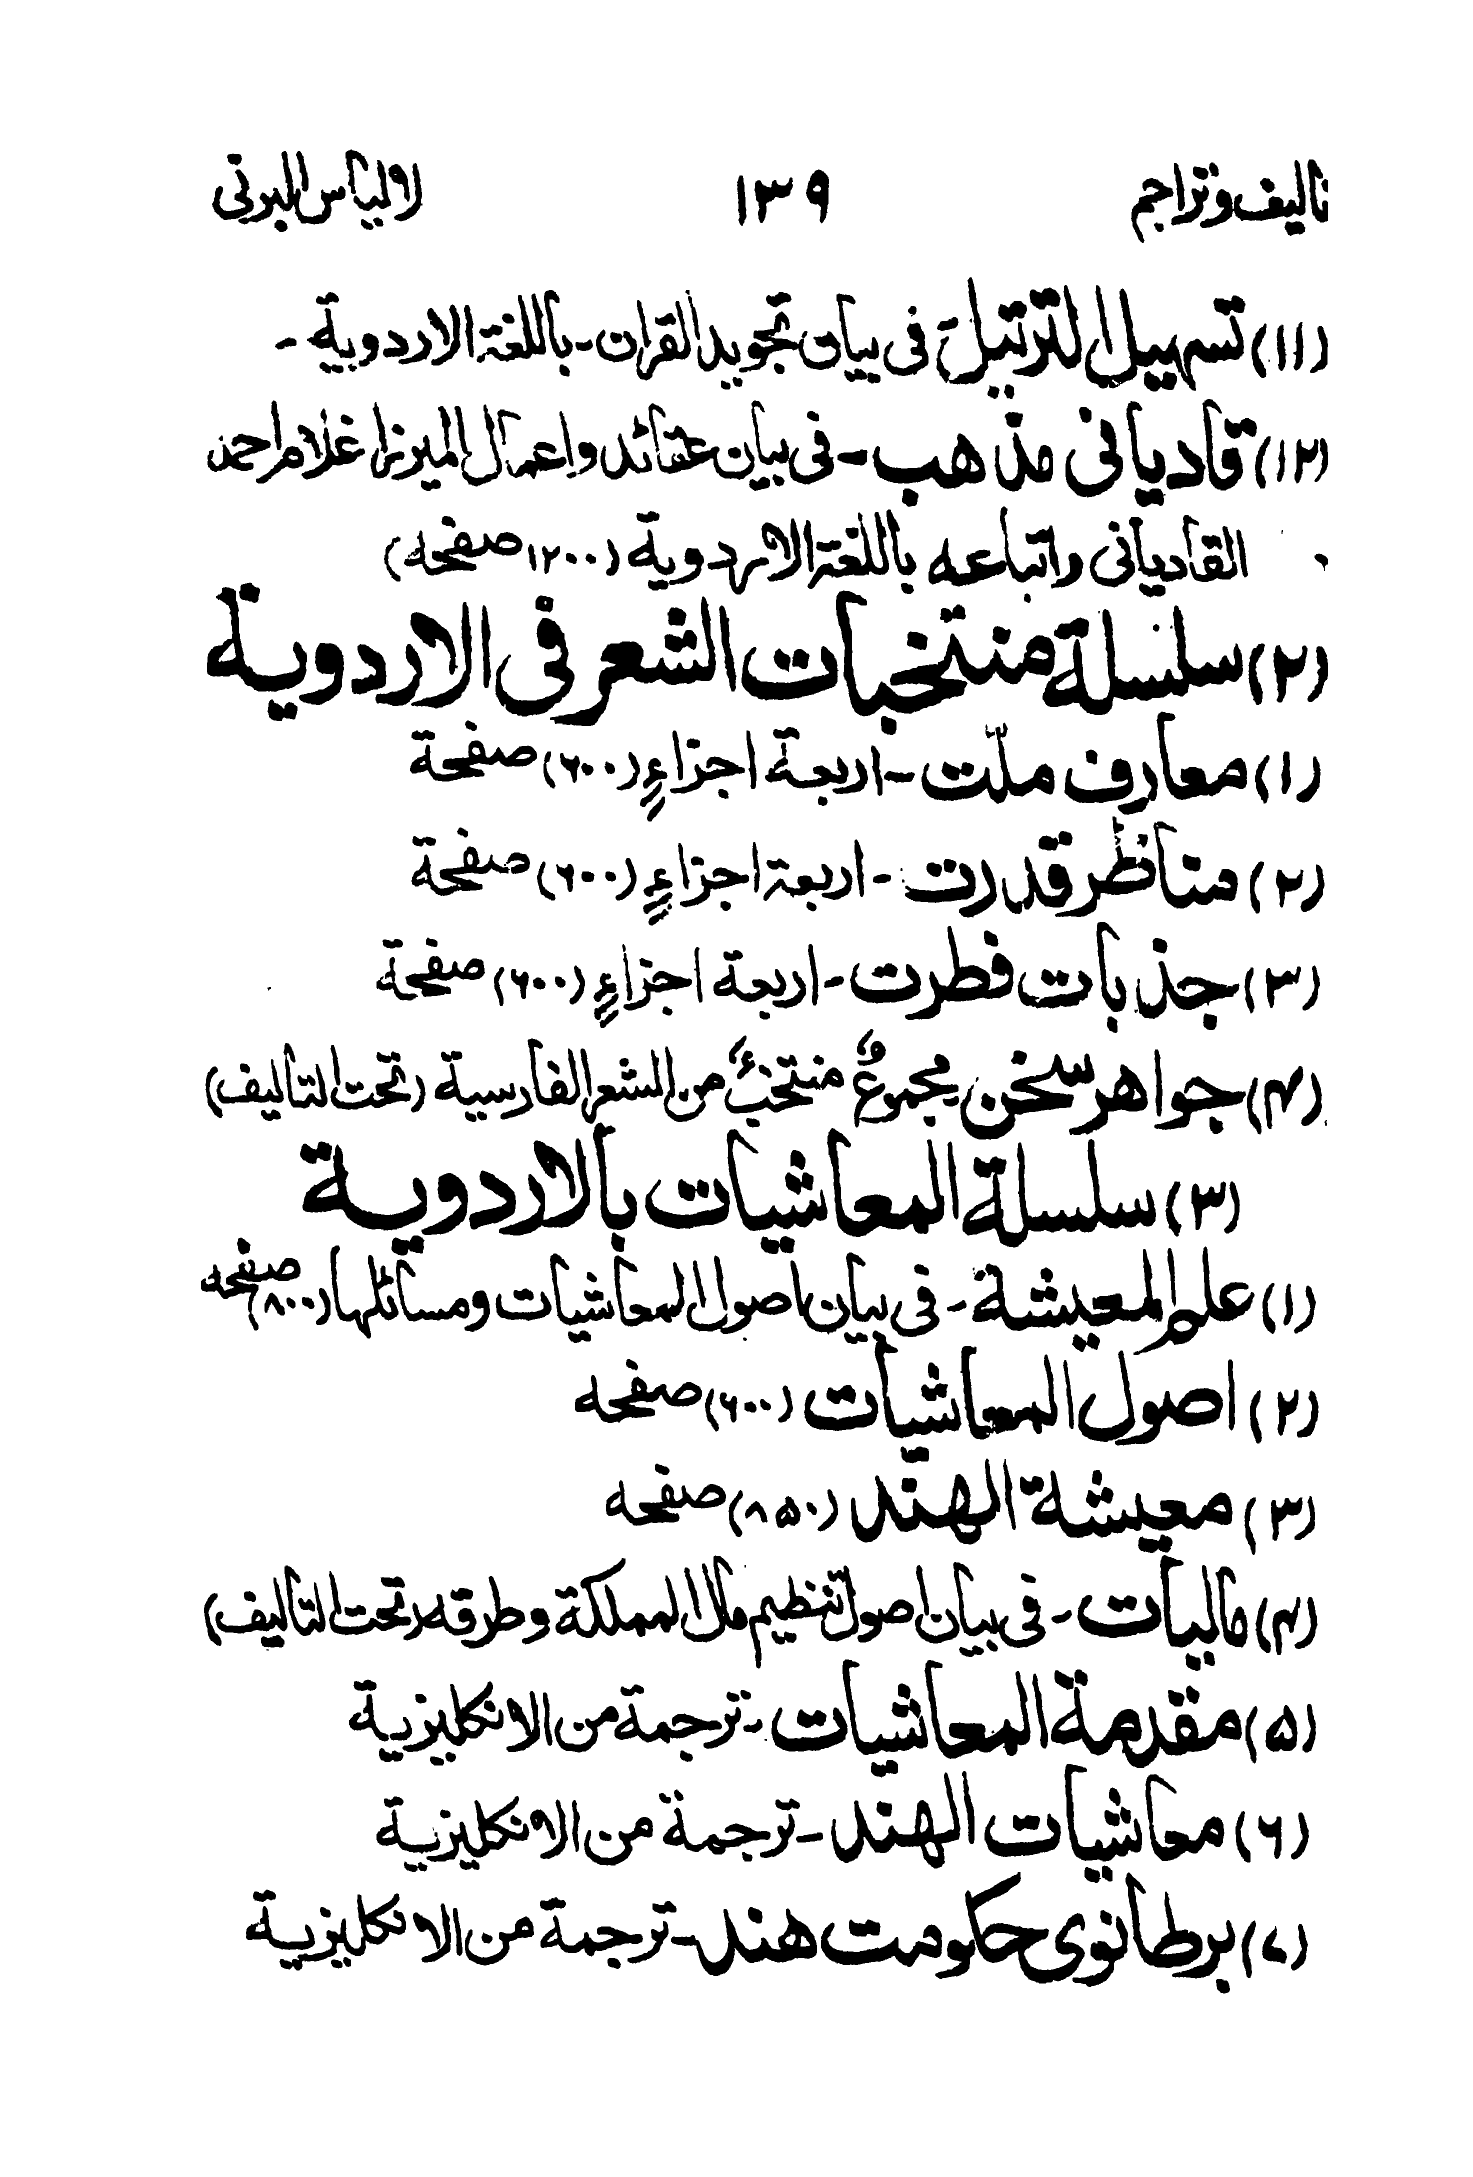 تاليف وتراجم ۱۳۹ لالياس البرنى
(۱۱) تسهيل الترتيل فى بيان تجويد القران - باللغة الاردوية -
(۱۲) قاديانى مذهب - فى بيان عقائد واعمال الميرزا غلام احمد
القاديانى واتباعه باللغة الاردوية (۱۲۰۰ صفحه)
(۲) سلسلة منتخبات الشعر فى الاردوية
(۱) معارف ملّت - اربعة اجزاءٍ (۶۰۰) صفحة
(۲) مناظر قدرت - اربعة اجزاءٍ (۶۰۰) صفحة
(۳) جذبات فطرت - اربعة اجزاءٍ (۶۰۰) صفحة
(۴) جواهر سخن مجموعٌ منتخبٌ من الشعر الفارسية (تحت التاليف)
(۳) سلسلة المعاشيات بالاردوية
(۱) علم المعيشة - فى بيان اصول المعاشيات ومسائلها (۸۰۰) صفحه
(۲) اصول المعاشيات (۶۰۰) صفحه
(۳) معيشة الهند (۸۵۰) صفحه
(۴) ماليات - فى بيان اصول تنظيم مال المملكة وطرقه (تحت التاليف)
(۵) مقدمة المعاشيات - ترجمة من الانكليزية
(۶) معاشيات الهند - ترجمة من الانكليزية
(۷) برطانوى حكومت هند - ترجمة من الانكليزية